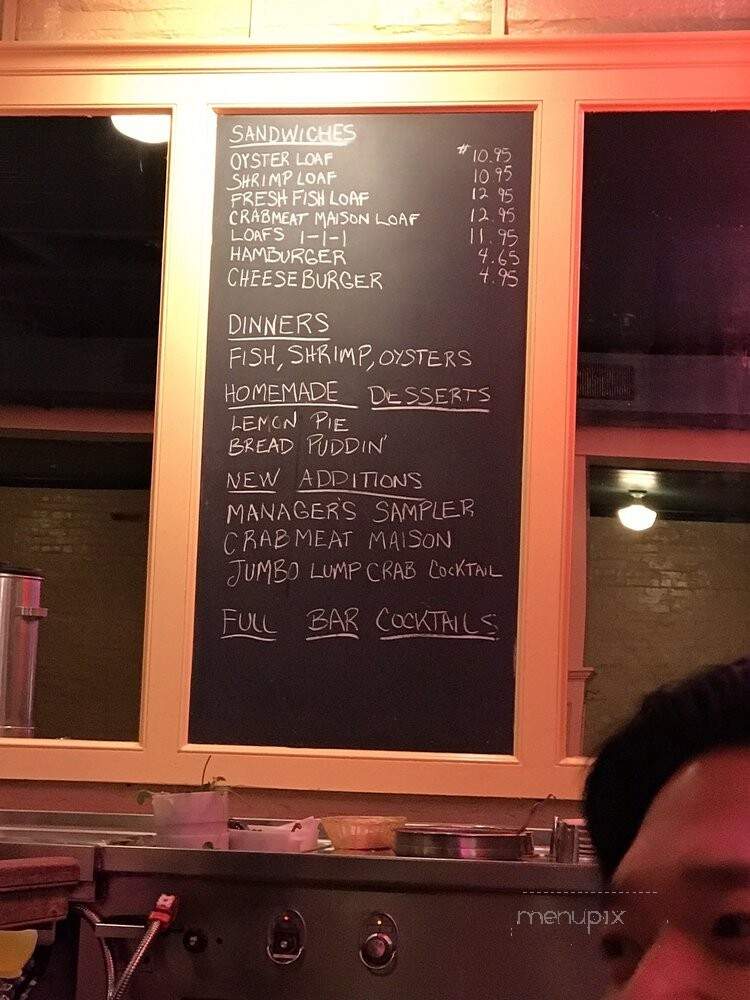 SANDWICHES
OYSTER LOAF $10.95
SHRIMP LOAF 10.95
FRESH FISH LOAF 12.95
CRABMEAT MAISON LOAF 12.95
LOAFS 1-1-1 11.95
HAMBURGER 4.65
CHEESEBURGER 4.95
DINNERS
FISH, SHRIMP, OYSTERS
HOMEMADE DESSERTS
LEMON PIE
BREAD PUDDIN'
NEW ADDITIONS
MANAGER'S SAMPLER
CRABMEAT MAISON
JUMBO LUMP CRAB COCKTAIL
FULL BAR COCKTAILS
menupix